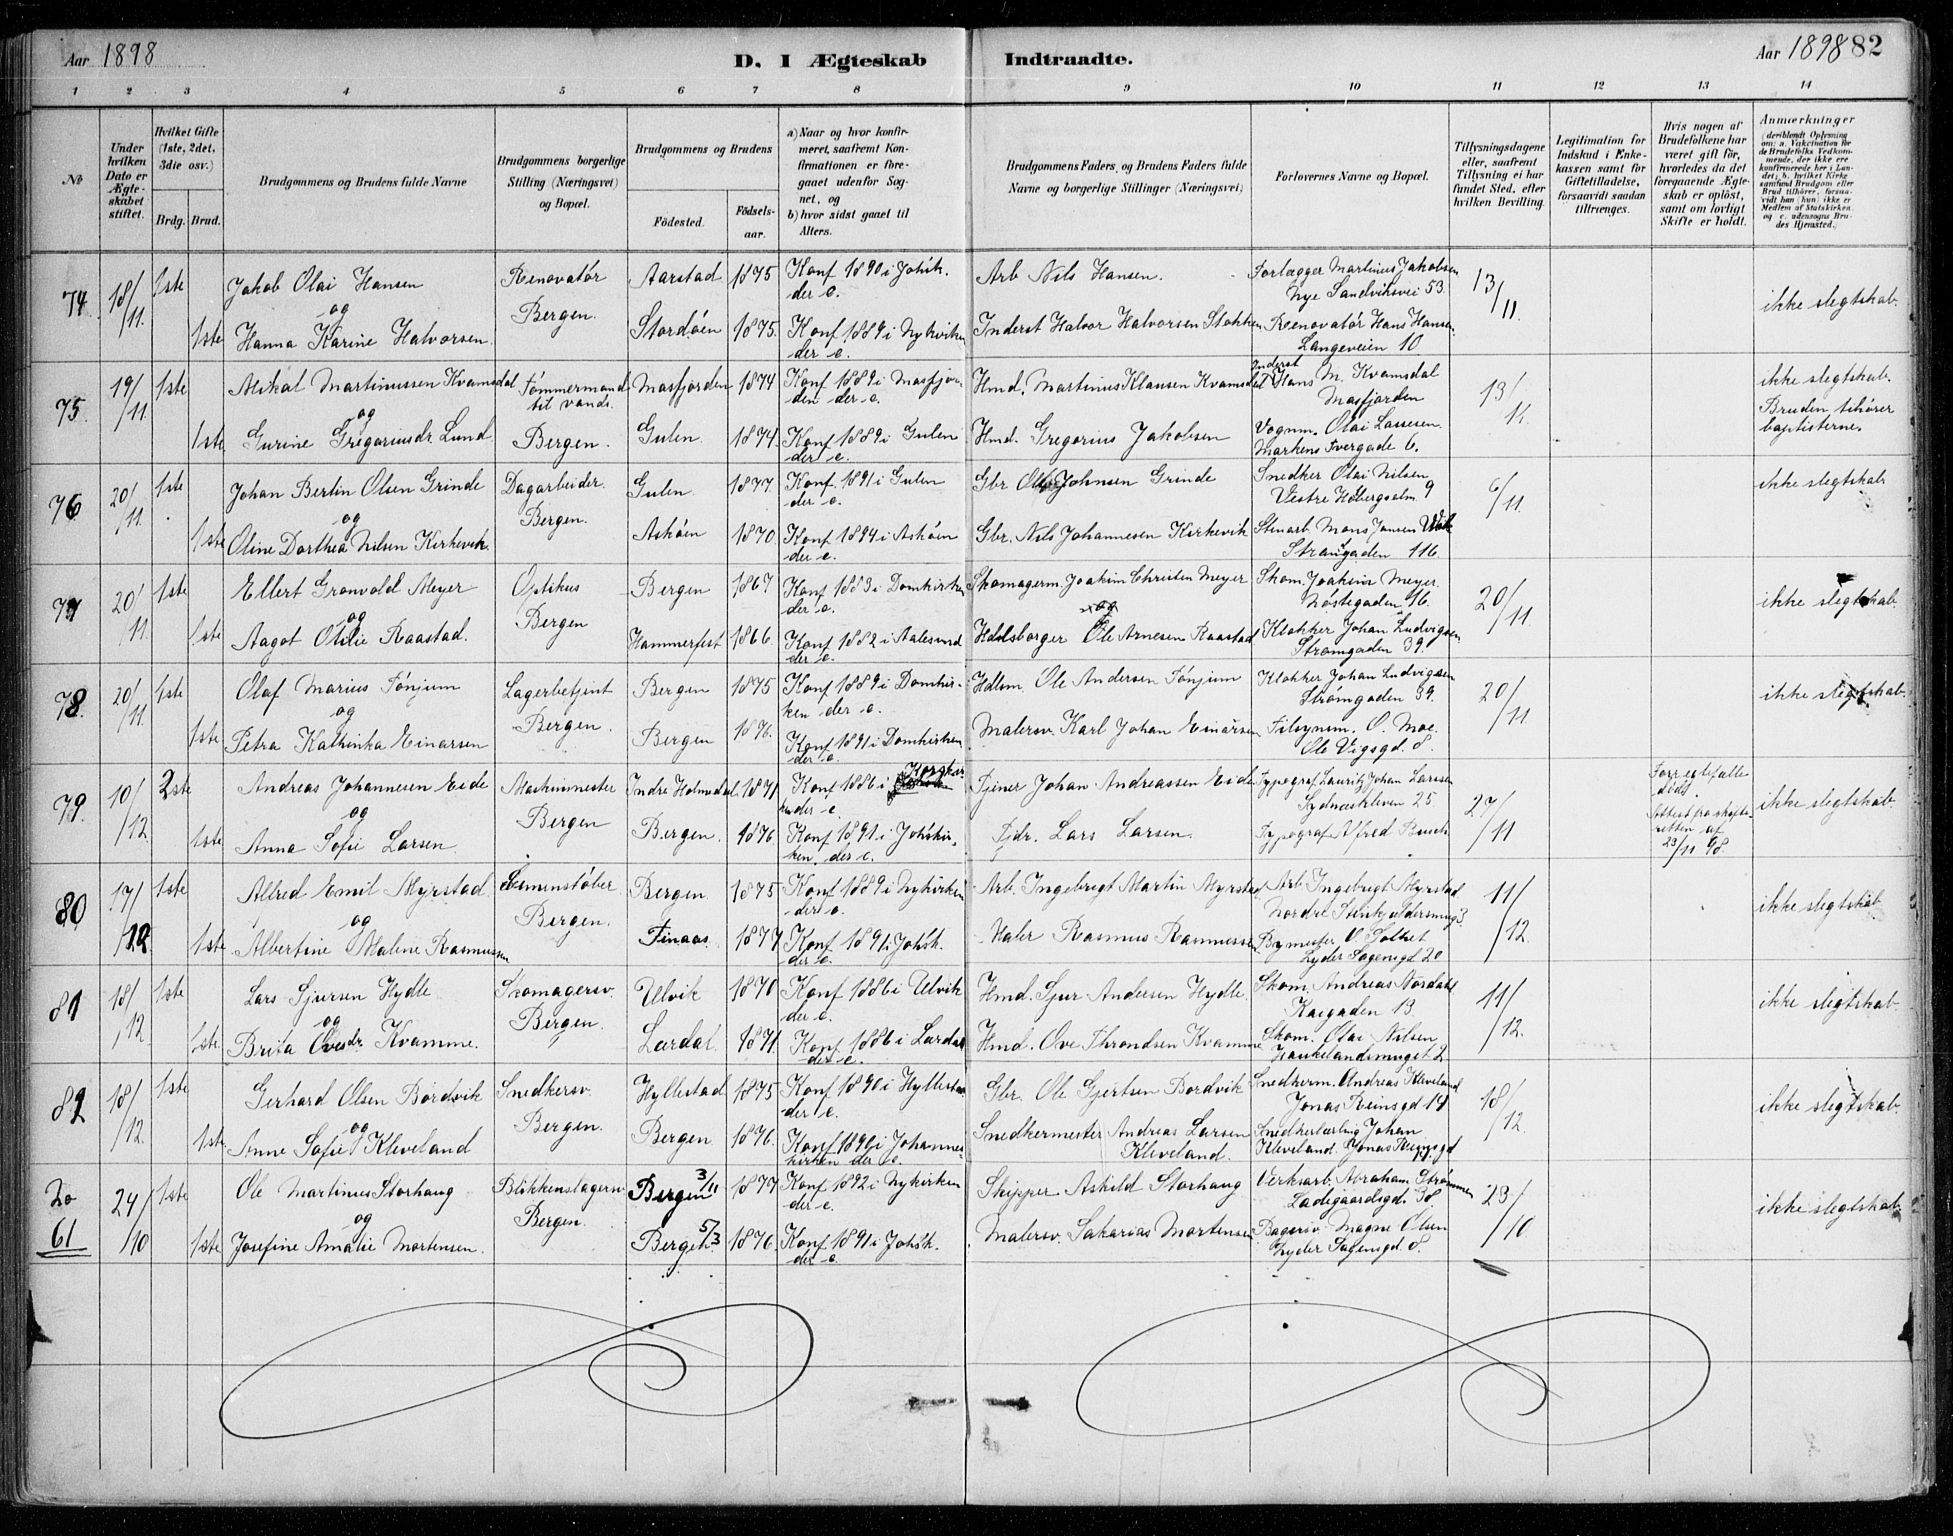 Aar 1898
D. I Ægteskab Indtraadte.
Aar 1898 82
1 2 3 4 5 6 7 8 9 10 11 12 13 14
No
Under hvilken Dato er Ægteskabet stiftet.
Hvilket Gifte (1ste, 2det, 3die osv.)
Brdg. Brud.
Brudgommens og Brudens fulde Navne
Brudgommens borgerlige Stilling (Næringsvei) og Bopæl.
Brudgommens og Brudens
Fødested. Fødsels-aar.
a) Naar og hvor konfirmeret, saafremt Konfirmationen er foregaaet udenfor Sognet, og
b) hvor sidst gaaet til Alters.
Brudgommens Faders og Brudens Faders fulde Navne og borgerlige Stillinger (Næringsvei)
Forlovernes Navne og Bopæl.
Tillysningsdagene eller, saafremt Tillysning ei har fundet Sted, efter hvilken Bevilling.
Legitimation for Indskud i Enkekassen samt for Giftetilladelse, forsaavidt saadan tiltrænges.
Hvis nogen af Brudefolkene har været gift før, hvorledes da det foregaaende Ægteskab er opløst, samt om lovligt Skifte er holdt.
Anmærkninger (deriblandt Oplysning om: a. Vakcination for de Brudefolks Vedkommende, der ikke ere konfirmerede her i Landet; b. hvilket Kirkesamfund Brudgom eller Brud tilhører, forsaavidt han (hun) ikke er Medlem af Statskirken, og c. udensogns Brudes Hjemsted.)
74 18/11 1ste Jakob Olai Hansen Renovatør Aarstad 1875 Konf 1890 i Johsk. Arb Nils Hansen. Forlægger Martinius Jakobsen 13/11 ikke slegtskab
og Bergen. der e. Nye Sandviksvei 53
1ste Hanna Karine Halvorsen. Stordøen 1875. Konf 1889 i Nykirken Inderst Halvor Halvorsen Stokken Renovatør Hans Hansen
der e. Langeveien 10
75. 19/11 1ste Mikal Martinussen Kvamsdal Tømmermand Masfjorden 1874 Konf 1889 i Masfjor- Hmd. Martinus Klausen Kvamsdal Inderst Hans M. Kvamsdal 13/11 ikke slegtskab.
og til vands den der e. Masfjorden Bruden tihører
1ste Gurine Gregoriusdr Lund Bergen. Gulen. 1874. Konf 1889 i Gulen Hmd. Gregorius Jakobsen Vognm. Olai Lassesen baptisterne.
der e. Markens tvergade 6.
76 20/11 1ste Johan Bertin Olsen Grinde Dagarbeider Gulen 1877 Konf 1891 i Gulen Gbr Ole Johnsen Grinde Snedker Olai Nilsen 6/11 ikke slegtskab
og Bergen. der e. Vestre 9
1ste Oline Dorthea Nilsen Kirkevik. Askøen 1870 Konf 1894 i Askøen Gbr. Nils Johannesen Kirkevik Stenarb Mons Jansen
der e. Strangaden 116
77 20/11 1ste Ellert Grønvold Meyer Optikus Bergen 1867 Konf 1883 i Domkirken Skomagerm. Joakim Christen Meyer Skom. Joakim Meyer 20/11 ikke slegtskab
og Bergen der e. og Nøstegaden 16.
1ste Aagot Otilie Raastad. Hammerfest 1866. Konf 1882 i Aalesund Hdlsborger Ole Arnesen Raastad Klokker Johan Ludvigsen
der e. Strømgaden 39.
78. 20/11 1ste Olaf Marius Tønjum Lagerbetjent Bergen 1875 Konf 1889 i Domkir- Hdlsm. Ole Andersen Tønjum Klokker Johan Ludvigsen 20/11 ikke slegtskab.
og Bergen. ken der e. Strømgaden 39.
1ste Petra Kathinka Einarsen Bergen 1876. Konf 1891 i Domkirken Malersv. Karl Johan Einarsen Tilsynsm. O. Moe
der e. Ole Vigsgd. 8.
79. 10/12 2ste Andreas Johannesen Eide Maskinmester Indre Holmedal. 1871 Konf 1886 i Korskir- Tjener Johan Andreassen Eide Typograf Lauritz Johan Larssen 27/11 Forr egtefælle ikke slegtskab
og Bergen ken der e Sydnæskleven 25 død.
1ste Anna Sofie Larsen. Bergen. 1876. Konf 1891 i Johskir- Fjdr. Lars Larsen. Typograf Alfred Busch Attest fra skifte-
ken. der e. retten af
23/11 98.
80 17/12 1ste Alfred Emil Myrstad. Bergen 1875 Konf 1889 i Nykirken Arb. Ingebrigt Martin Myrstad Arb. Ingebrigt Myrstad 11/12. ikke slegtskab
og Bergen. der e. Nordre 3
1ste Albertine Malene Rasmussen Finaas 1877 Konf 1891 i Johsk. Maler Rasmus Rasmussen Bymester O Soltvet
der e. Lyder Sagensgd 20
81 18/12 1ste Lars Sjursen Hydle Skomagersv. Ulvik 1870 Konf 1886 i Ulvik Hmd. Sjur Andersen Hydle. Skom. Andreas Nordahl 11/12. ikke slegtskab
og Bergen. der e. Kaigaden 13.
1ste Brita Ovesdr Kvamme. Lærdal. 1871. Konf 1886 i Lærdal Hmd. Ove Throndsen Kvamme Skom. Olai Nilsen
der e. Haukelandsmuget 2
82 18/12. 1ste Gerhard Olsen Bordvik Snedkersv. Hyllestad 1875 Konf 1890 i Hyllestad Gbr. Ole Gjertsen Bordvik Snedkerm. Andreas Kleveland 18/12. ikke slegtskab
og Bergen. der e. Jonas Reinsgd 14
1ste Anne Sofie Kleveland Bergen 1876. Konf 1890 i Johannes- Snedkermester Andreas Larsen Snedkerlærling Johan
kirken der e. Kleveland. Kleveland. Jonas Reinsgd
61 24/10 1ste Ole Martinus Storhaug Blikkenslagersv. Bergen 3/11 1877 Konf 1892 i Nykirken Skipper Askild Storhaug Verksarb. Abraham Strømmen 23/10 ikke slegtskab
og Bergen. der e. Ladegaardsgd. 38
1ste Josefine Amalie Mortensen. Bergen 5/3 1876. Konf 1891 i Johsk. Malersv. Sakarias Mortensen Bagersv. Magne Olsen
der e. Lyder Sagensgd. 8.